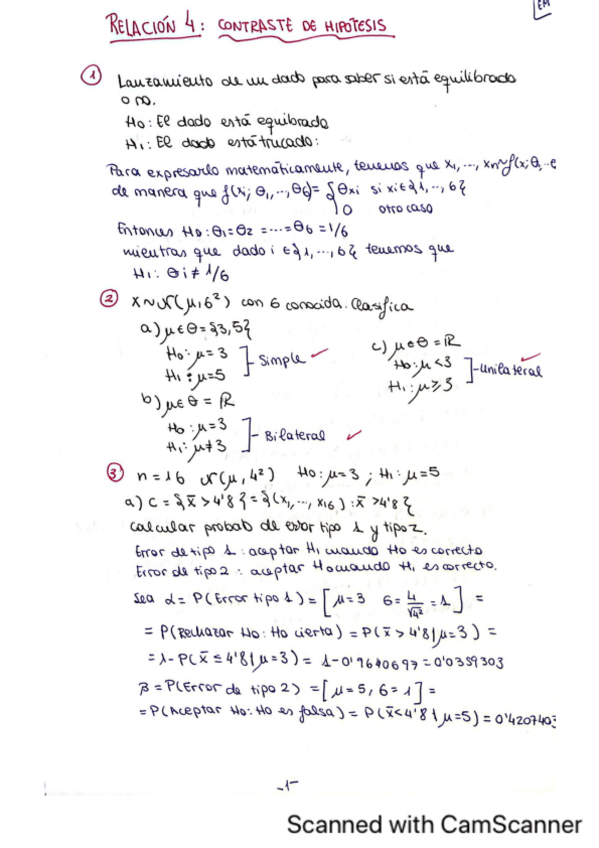 EM
RELACIÓN 4: CONTRASTE DE HIPÓTESIS
① Lanzamiento de un dado para saber si está equilibrado
o no.
H0: El dado está equibrado
H1: El dado está trucado:
Para expresarlo matemáticamente, tenemos que x1, ..., xn ~ f(x; θ, ..e
de manera que f(xi; θ1, ..., θ6) = { θxi si xi ∈ {1, .., 6}
0 otro caso
Entonces H0: θ1 = θ2 = ---- = θ6 = 1/6
mientras que dado i ∈ {1, ..., 6} tenemos que
H1: θi ≠ 1/6
② X ~ N(μ, σ²) con σ conocida. Clasifica
a) μ ∈ Θ = {3, 5}
H0: μ = 3
H1: μ = 5
] - Simple ✓
b) μ ∈ Θ = ℝ
H0: μ = 3
H1: μ ≠ 3
] - Bilateral ✓
c) μ ∈ Θ = ℝ
H0: μ < 3
H1: μ ⩾ 3
] - Unilateral ✓
③ n = 16 N(μ, 4²) H0: μ = 3 ; H1: μ = 5
a) C = {x̄ > 4'8} = {(x1, ..., x16) : x̄ > 4'8}
Calcular probab de error tipo 1 y tipo 2.
Error de tipo 1: aceptar H1 cuando H0 es correcto
Error de tipo 2: aceptar H0 cuando H1 es correcto.
Sea α = P(Error tipo 1) = [ μ = 3 σ = 4/√4² = 1 ] =
= P(Rechazar H0: H0 cierta) = P(x̄ > 4'8 | μ = 3) =
= 1 - P(x̄ ≤ 4'8 | μ = 3) = 1 - 0'9640697 = 0'0359303
β = P(Error de tipo 2) = [μ = 5, σ = 1] =
= P(Aceptar H0: H0 es falsa) = P(x̄ < 4'8 | μ = 5) = 0'420740
-1-
Scanned with CamScanner